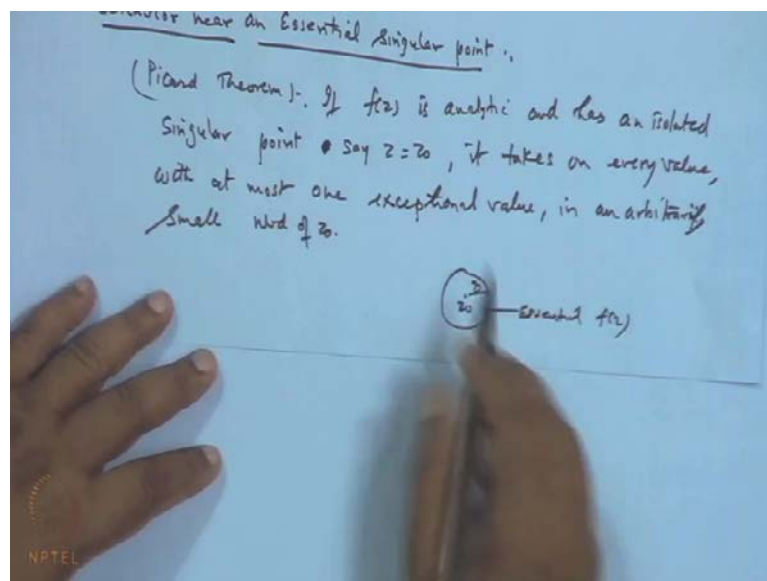 near an Essential Singular point.,
(Picard Theorem):. If f(z) is analytic and has an isolated
Singular point say z = z0, it takes on every value,
with at most one exceptional value, in an arbitrarily
small nbd of z0.
z0 Essential f(z)
NPTEL